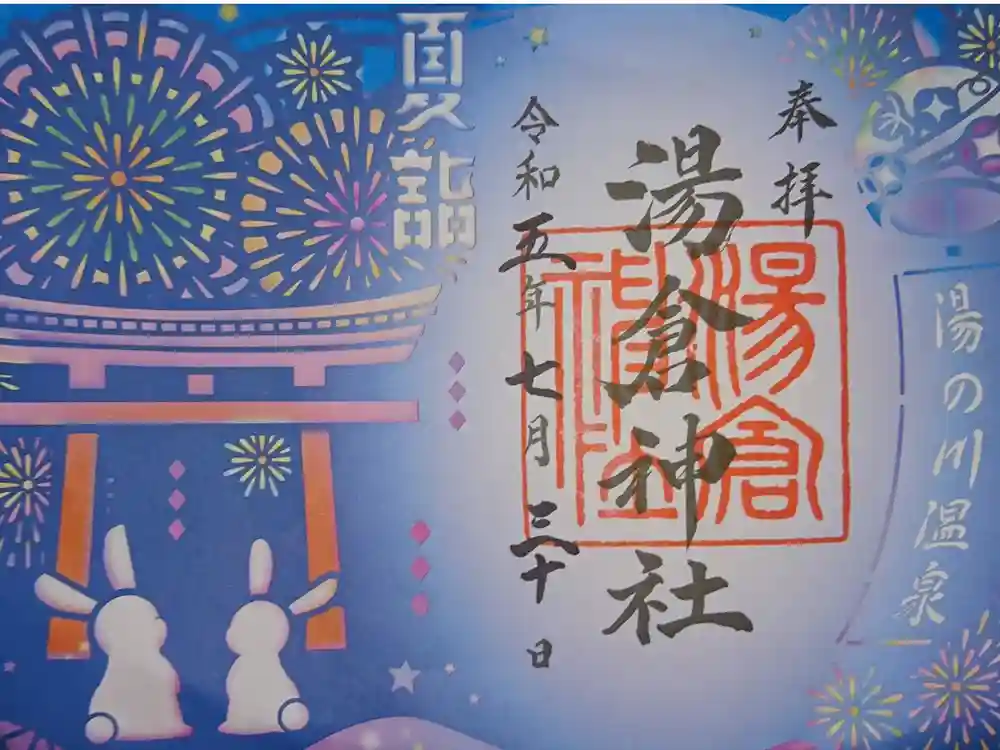 奉拝
湯の川温泉
湯倉神社
湯倉神社
令和五年七月三十日
夏詣